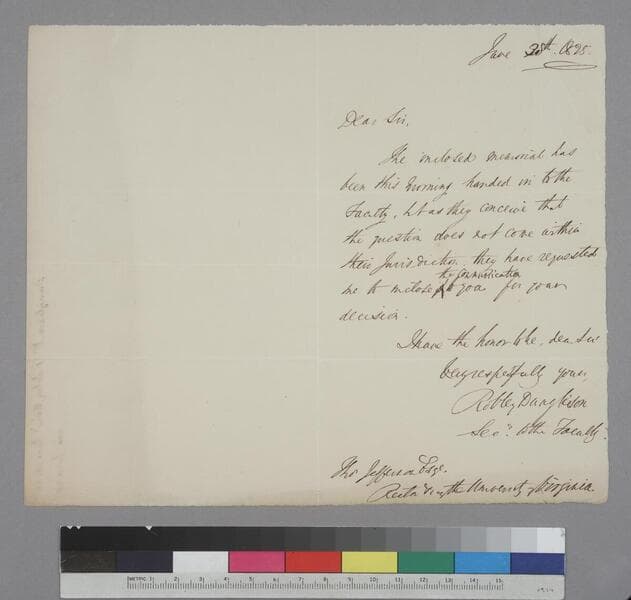 June 30th. 1825.
Dear Sir,
The inclosed memorial has
been this morning handed in to the
Faculty, but as they conceive that
the question does not come within
their Jurisdiction, they have requested
the communication
me to inclose to you for your
decision.
I have the honor to be, dear Sir
Very respectfully yours,
Robley Dunglison
Secy. to the Faculty.
Thos Jefferson Esqr.
Rector of the University of Virginia
METRIC 1 2 3 4 5 6 7 8 9 10 11 12 13 14 15